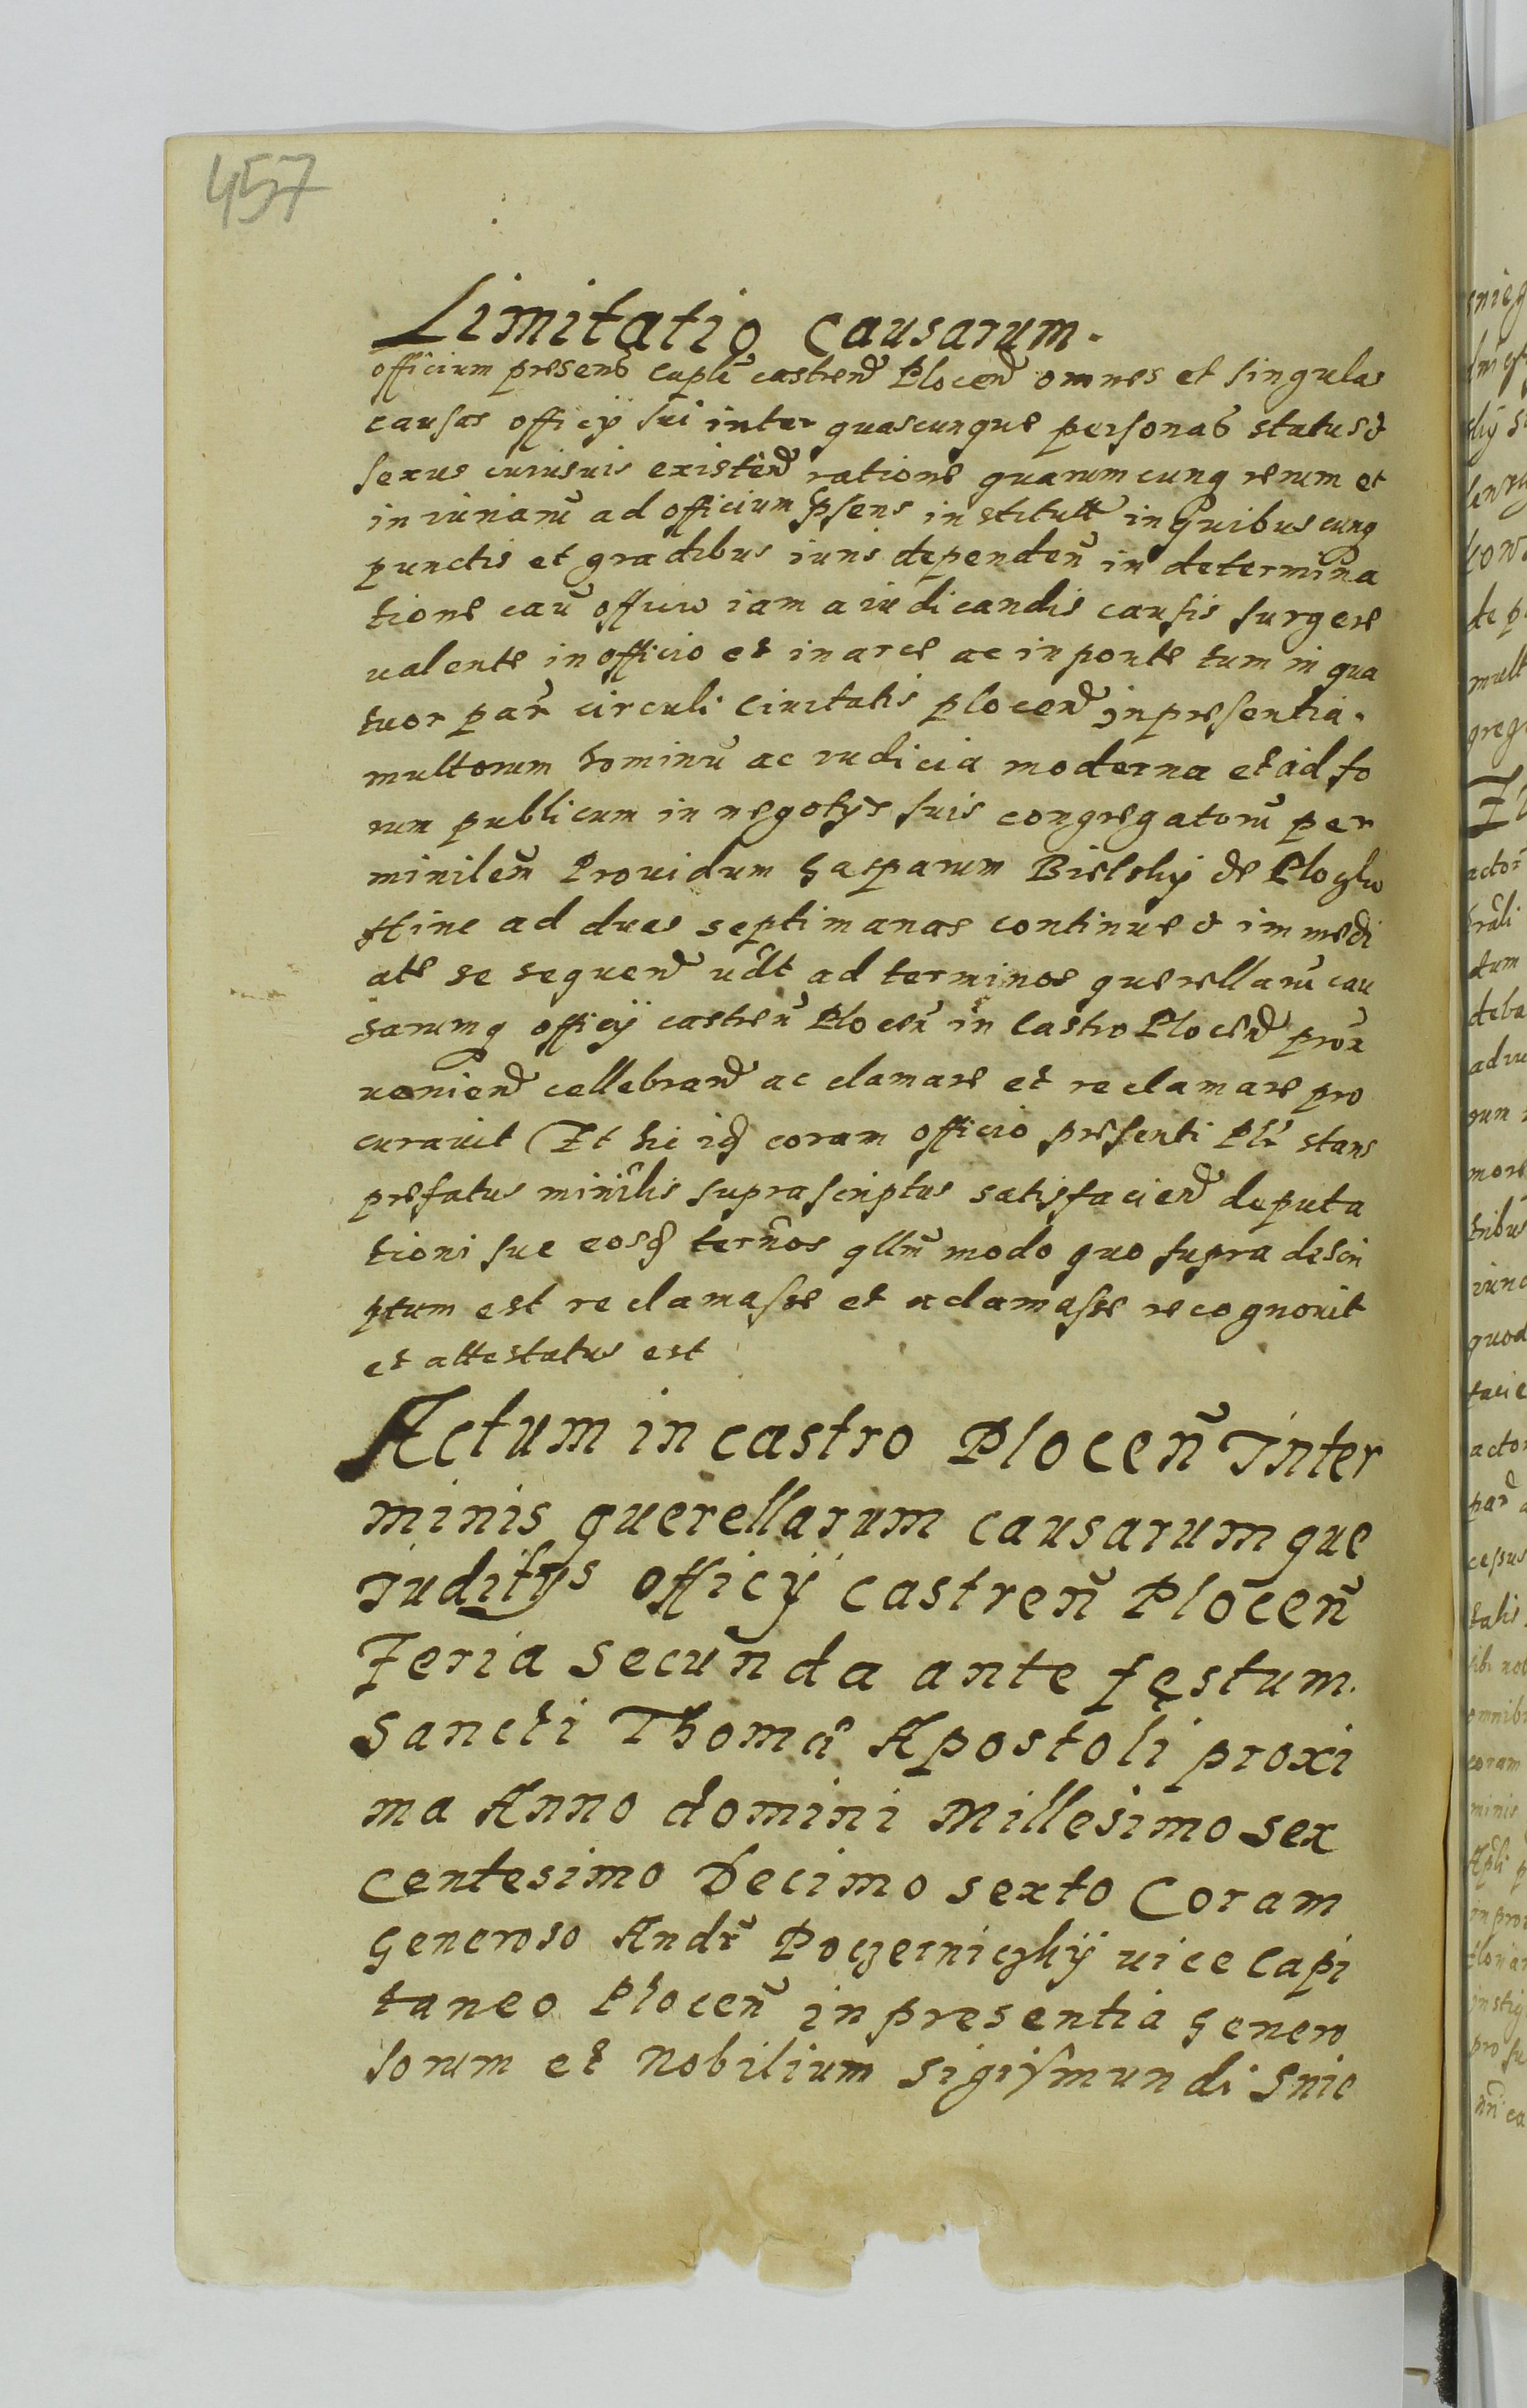 457
Limitatio causarum.
officium presens Capłn castren Plocen omnes et singulas
causas officÿ sui inter quascunque personas status et
sexus cuiusuis existen ratione quarumcunq rerum et
iniuriarū ad officium pſens institutt in quibuscunq
punctis et gradibus iuris dependen in determina
tione caū officio iam a iudicandis causis surgere
ualente in officio et in arce ac in ponte tum in qua
tuor par circuli Ciuitatis plocen in presentia.
multorum hominū ac iudicia moderna et ad fo
rum publicum in negotÿs suis congregatorū per
minilem Prouidum Gasparum Bielsky de
Hinc ad duas septimanas continue et immedi
ate se sequen ad terminos querellarū cau
sarumq officÿ castren Plocen in Castro Plocen prox
uenien cellebran ac clamare et reclamare pro
curauit Et hic idem coram officio presenti stans
prefatus minilis suprascriptus satisfacien deputa
tioni sue eosq termos qllm modo quo supra descri
ptum est reclamasse et aclamasse recognouit
et attestatus est
Actum in castro Plocen̄ In ter
minis querellarum causarumque
Juditÿs officÿ castren̄ Plocen̄
Feria secunda ante festum.
Sancti Thomæ Apostoli proxi
ma Anno domini Millesimo sex
centesimo Decimo sexto Coram
Generoso Andr Poczerniczkÿ uice Capi
taneo Plocen̄ in presentia genero
sorum et Nobilium Sigismundi Snie